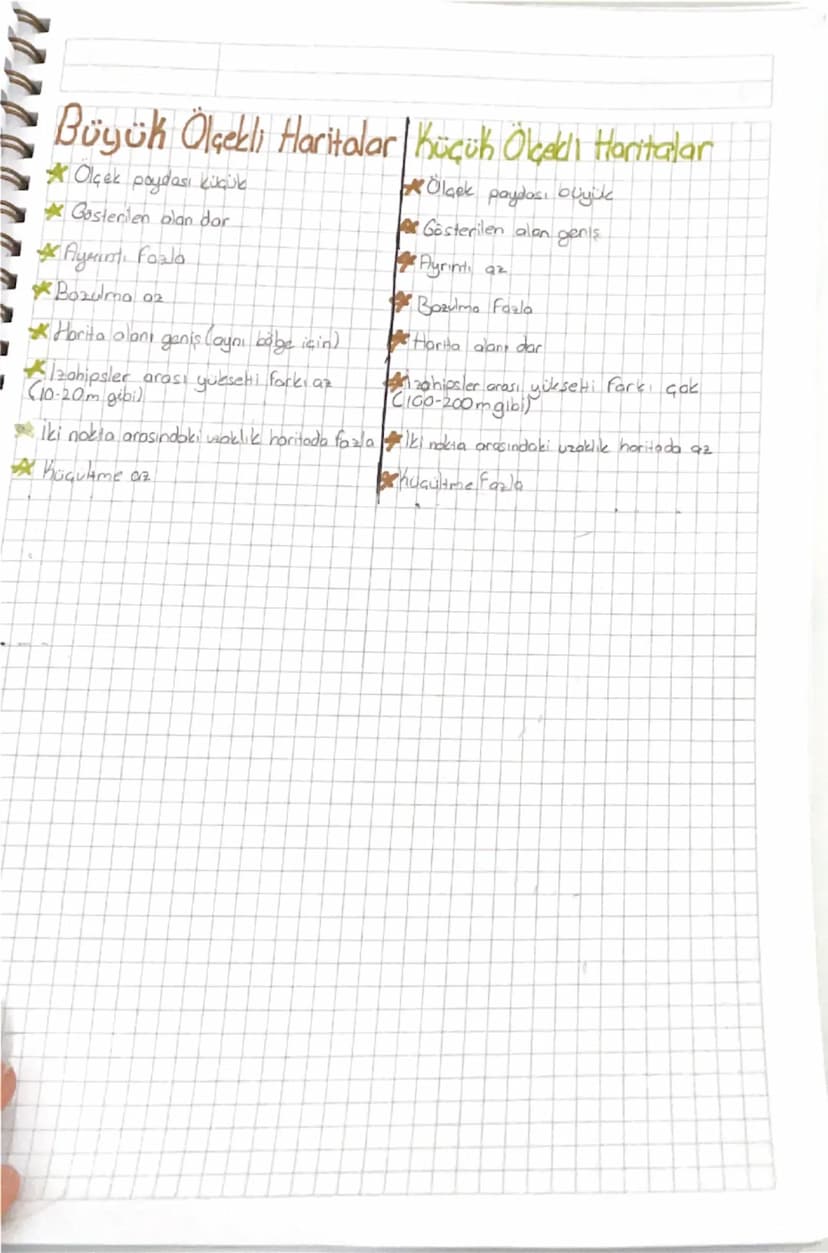 Büyük Ölçekli Haritalar
★ Ölçek paydası küçük
★ Gösterilen alan dar
★ Ayrıntı fazla
★ Bozulma az
★ Harita alanı geniş (aynı bölge için)
★ İzohipsler arası yükselti farkı az
(10-20m gibi)
★ İki nokta arasındaki uzaklık haritada fazla
★ Küçültme az
Küçük Ölçekli Haritalar
★ Ölçek paydası büyük
★ Gösterilen alan geniş
★ Ayrıntı az
★ Bozulma fazla
★ Harita alanı dar
★ İzohipsler arası yükselti farkı çok
(100-200m gibi)
★ İki nokta arasındaki uzaklık haritada az
★ Küçültme fazla